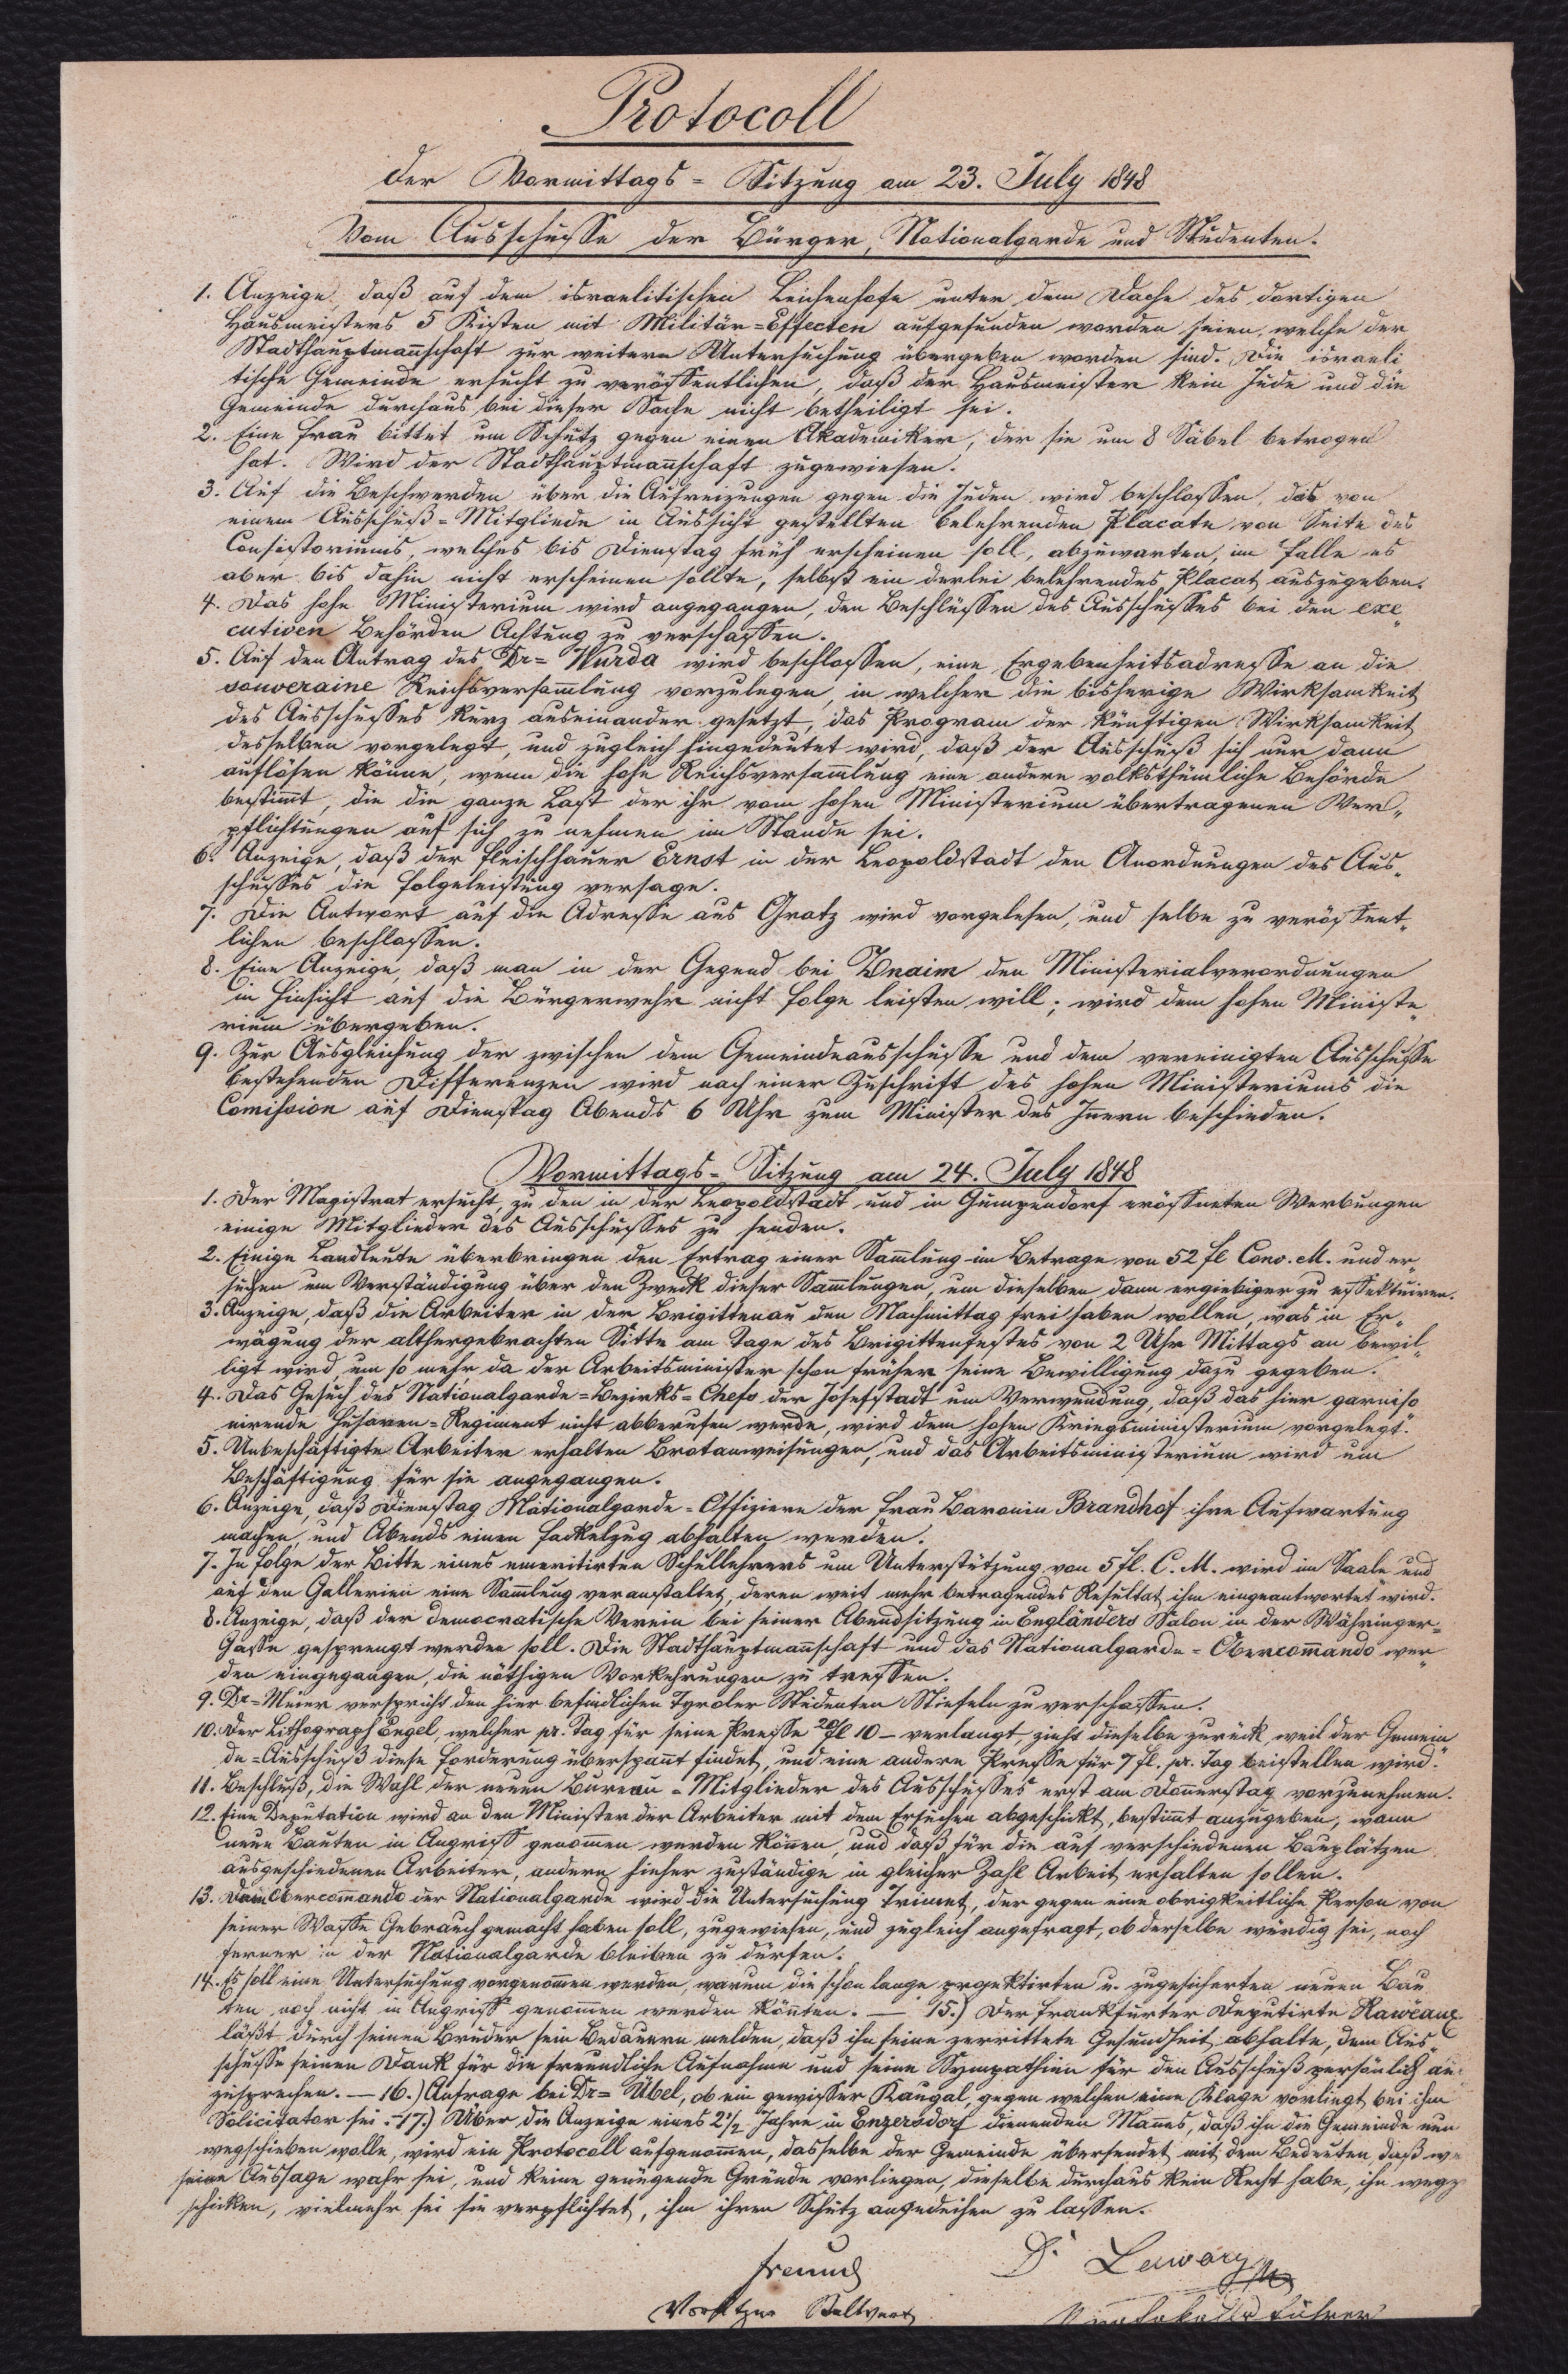 Protocoll
der Vormittags = Sitzung am 23. July 1848
Vom Ausschusse der Bürger, Nationalgarde und Studenten.
1. Anzeige, daß auf dem israelitischen Leichenhofe unter dem Dache des dortigen
Hausmeisters 5 Kisten mit Militär=Effecten aufgefunden worden seien, welche der
Stadthauptmannschaft zur weitern Untersuchung übergeben worden sind. Die israeli
tische Gemeinde ersucht zu veröffentlichen, daß der Hausmeister kein Jude und die
Gemeinde durchaus bei dieser Sache nicht betheiligt sei.
2. Eine Frau bittet um Schutz gegen einen Akademiker, der sie um 8 Säbel betrogen
hat. Wird der Stadthauptmannschaft zugewiesen.
3. Auf die Beschwerden über die Aufreizungen gegen die Juden wird beschlossen, das von
einem Ausschuß=Mitgliede in Aussicht gestellten belehrenden Placate von Seite des
Consistoriums, welches bis Dienstag früh erscheinen soll, abzuwarten, im Falle es
aber bis dahin nicht erscheinen sollte, selbst ein derlei belehrendes Placat auszugeben.
4. Das hohe Ministerium wird angegangen, den Beschlüssen des Ausschusses bei den exe„
cutiven Behörden Achtung zu verschaffen.
5. Auf den Antrag des Dr= Wurda wird beschlossen, eine Ergebenheitsadresse an die
souveraine Reichsversammlung vorzulegen, in welcher die bisherige Wirksamkeit
des Ausschusses kurz auseinander gesetzt, das Program der künftigen Wirksamkeit
desselben vorgelegt, und zugleich hingedeutet wird, daß der Ausschuß sich nur dann
auflösen könne, wenn die hohe Reichsversammlung eine andere volksthümliche Behörde
bestimmt, die die ganze Last der ihr vom hohen Ministerium übertragenen Ver„
pflichtungen auf sich zu nehmen im Stande sei.
6. Anzeige, daß der Fleischhauer Ernst in der Leopoldstadt den Anordnungen des Aus„
schusses die Folgeleistung versage.
7. Die Antwort auf die Adresse aus Gratz wird vorgelesen, und selbe zu veröffent„
lichen beschlossen.
8. Eine Anzeige, daß man in der Gegend bei Znaim den Ministerialverordnungen
in Hinsicht auf die Bürgerwehr nicht Folge leisten will; wird dem hohen Ministe„
rium übergeben.
9. Zur Ausgleichung der zwischen dem Gemeindeausschusse und dem vereinigten Ausschusse
bestehenden Differenzen wird nach einer Zuschrift des hohen Ministeriums die
Comission auf Dienstag Abends 6 Uhr zum Minister des Innern beschieden.
Vormittags= Sitzung am 24. July 1848
1. Der Magistrat ersucht, zu den in der Leopoldstadt und in Gumpendorf eröffneten Werbungen
einige Mitglieder des Ausschusses zu senden.
2. Einige Landleute überbringen den Ertrag einer Sammlung im Betrage von 52 fl Conv. M. und er„
suchen um Verständigung über den Zweck dieser Sammlungen, um dieselben dann ergiebiger zu effektuiren.
3. Anzeige, daß die Arbeiter in der Brigittenau den Nachmittag frei haben wollen, was in Er„
wägung der althergebrachten Sitte am Tage des Brigittenfestes von 2 Uhr Mittags an bewil„
ligt wird, um so mehr da der Arbeitsminister schon früher seine Bewilligung dazu gegeben.
4. Das Gesuch des Nationalgarde=Bezirks=Chefs der Josefstadt um Verwendung, daß das hier garniso„
nirende Husaren=Regiment nicht abberufen werde, wird dem hohen Kriegsministerium vorgelegt.
5. Unbeschäftigte Arbeiter erhalten Brotanweisungen, und das Arbeitsministerium wird um
Beschäftigung für sie angegangen.
6. Anzeige, daß Dienstag Nationalgarde=Offiziere der Frau Baronin Brandhof ihre Aufwartung
machen, und Abends einen Fackelzug abhalten werden.
7. In Folge der Bitte eines emeritirten Schullehrers um Unterstützung von 5 fl. C. M. wird im Saale und
auf den Gallerien eine Sammlung veranstaltet, deren weit mehr betragendes Resultat ihm eingeantwortet wird.
8. Anzeige, daß der democratische Verein bei seiner Abendsitzung in Engländers Salon in der Währinger=
Gasse gesprengt werden soll. Die Stadthauptmannschaft und das Nationalgarde=Obercommando wer„
den eingegangen, die nöthigen Vorkehrungen zu treffen.
9. Dr=Meier verspricht den hier befindlichen Tyroler Studenten Stiefeln zu verschaffen.
10. Der Lithograph Engel, welcher pr. Tag für seine Presse fl 10 – verlangt, zieht dieselbe zurück, weil der Gemein
de=Ausschuß diese Forderung überspannt findet, und eine andere Presse für 7 fl. pr. Tag beistellen wird.
11. Beschluß, die Wahl der neuen Bureau=Mitglieder des Ausschusses erst am Donnerstag vorzunehmen.
12. Eine Deputation wird an den Minister der Arbeiter mit dem Ersuchen abgeschickt, bestimmt anzugeben, wann
neue Bauten in Angriff genommen werden können, und daß für die auf verschiedenen Bauplätzen
ausgeschiedenen Arbeiter, andere hieher zuständige in gleicher Zahl Arbeit erhalten sollen.
13. Dem Obercommando der Nationalgarde wird die Untersuchung Trimmt, der gegen eine obrigkeitliche Person von
seiner Waffe Gebrauch gemacht haben soll, zugewiesen, und zugleich angefragt, ob derselbe würdig sei, noch
ferner in der Nationalgarde bleiben zu dürfen.
14. Es soll eine Untersuchung vorgenommen werden, warum die schon lange projektirten u. zugesicherten neuen Bau
ten noch nicht in Angriff genommen werden könnten. — 15.) Der Frankfurter Deputirte Raweaux
läßt durch seinen Bruder sein Bedauern melden, daß ihn seine zerrittete Gesundheit abhalte, dem Aus„
schusse seinen Dank für die freundliche Aufnahme und seine Sympathien für den Ausschuß persönlich au
zusprechen. — 16.) Anfrage bei Dr= Übel, ob ein gewisser Kaugal, gegen welchen eine Klage vorliegt, bei ihm
Solicitator sei. – 17.) Über die Anzeige eines 2½ Jahre in Enzersdorf dienenden Mannes, daß ihn die Gemeinde nun
wegschieben wolle, wird ein Protocoll aufgenommen, dasselbe der Gemeinde übersendet mit dem Bedeuten, daß we
seine Aussage wahr sei, und keine genügende Gründe vorliegen, dieselbe durchaus kein Recht habe, ihn wegz
schicken, vielmehr sei sie verpflichtet, ihm ihren Schutz angedeihen zu lassen.
Freund
Vorsitzer Stellvert
Dr